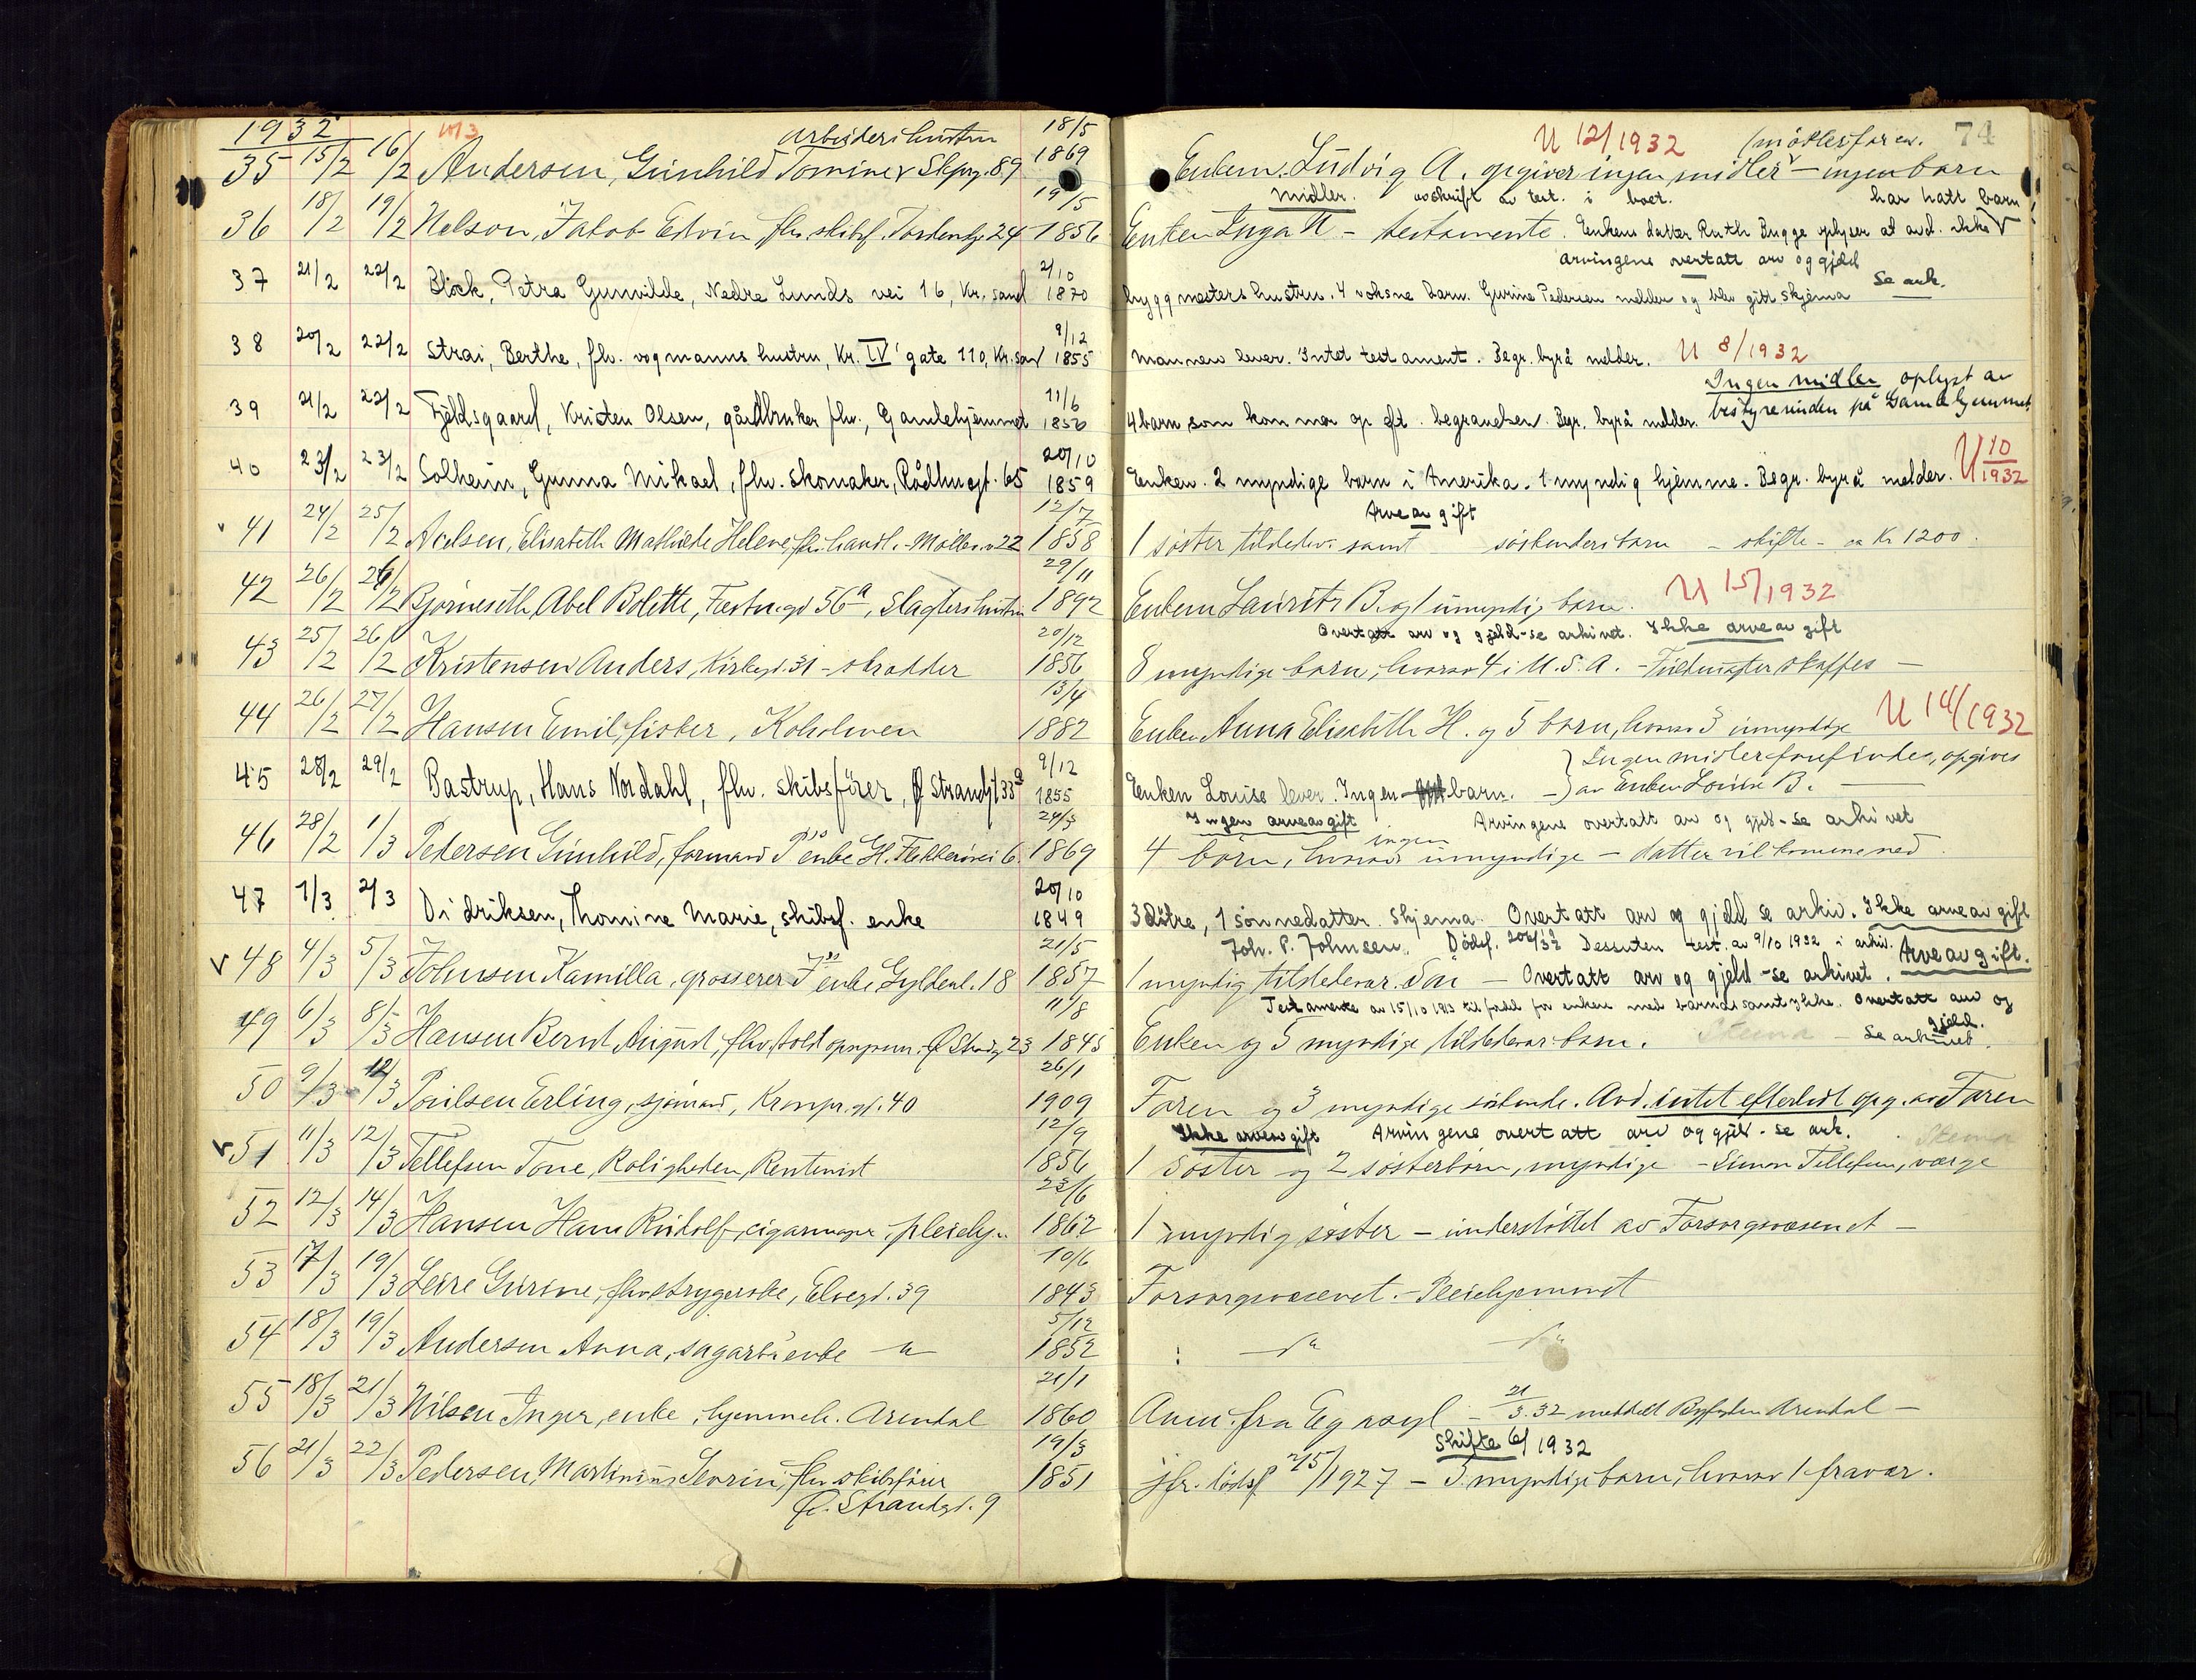 1932
35 15/2 16/2 Andersen, Gunhild Tomine, Skprg. 89 arbeiders hustru 18/5 1869
36 18/2 19/2 Nelson, Jakob Edvin flv. skibsf. Tordenkjg. 24 19/5 1856
37 21/2 22/2 Block, Petra Gunvilde, Nedre Lunds vei 16, Kr. sand 2/10 1870
38 20/2 22/2 Strai, Berthe, flv. vognmanns hustru, Kr. IV' gate 110, Kr. san 9/12 1855
39 21/2 22/2 Fjeldsgaard, Kristen Olsen, gårdbruker flv., Gamlehjemmet 11/6 1856
40 23/2 23/2 Solheim, Gunna Mikael, flv. skomaker, Rådhusgt. 65 20/10 1859
41 24/2 25/2 Axelsen, Elisabeth Mathilde Helene, flv. handl. Møllerv. 22 12/7 1858
42 26/2 26/2 Bjørneseth, Abel Bolette, Festn.gd 56a, Slagters hustru 29/11 1892
43 25/2 26/2 Kristensen Anders, Kirkegd. 31 - skrædder 20/12 1856
44 26/2 27/2 Hansen Emil, fisker, Koholmen 13/4 1882
45 28/2 29/2 Bastrup, Hans Nordahl, flv. skibsfører, Ø Strandgt 33a 9/12 1855
46 28/2 1/3 Pedersen Gunhild, formand P's enke H. Flekkerøvei 6. 24/3 1869
47 1/3 2/3 Didriksen, Thomine Marie, skibsf. enke 20/10 1849
48 4/3 5/3 Johnsen Kamilla, grosserer J's enke Gyldenl. 18 21/5 1857
49 6/3 8/3 Hansen Bernt August, flv. toldopsynsm. Ø Strandg 23 11/8 1845
50 9/3 12/3 Poulsen Erling, sjømand, Kronpr.gt. 40 26/1 1909
51 11/3 12/3 Tellefsen Tone, Roligheden, Rentenist 12/9 1856
52 12/3 14/3 Hansen Hans Rudolf, cigarmager, pleiehj. 23/6 1862
53 17/3 19/3 Leire Gurine, flv. strygerske, Elvegd. 39 10/6 1843
54 18/3 19/3 Andersen Anna, sagarb. enke 5/12 1852
55 18/3 21/3 Nilsen Inger, enke, hjemmeh. Arendal 21/1 1860
56 21/3 22/3 Pedersen, Martinius Severin, flv. skibsfører 19/3 1851
Ø. Strandgd. 9
74
U 12/1932
Enkem. Ludvig A. opgiver ingen midler - ingen barn
midler. avskrift av test. i boet. har hatt barn
Enken Inga N - testamente. Enkens datter Ruth Bugge oplyser at avd. ikke
Arvingene overtatt arv og gjeld
byggmesters hustru. 4 voksne barn. Gurine Pedersen melder og blev gitt skjema Se ark.
Mannen lever. Intet testament. Begr. byrå melder. U 8/1932
Ingen midler oplyst av
4 barn som kommer op eft. begravelsen. Begr. byrå melder. bestyrerinden på Gamlehjemmet
Enken. 2 myndige barn i Amerika. 1 myndig hjemme. Begr. byrå melder. U 10/1932
Arveavgift
1 søster tilstedev. samt søskendersbarn - skifte - ca Kr 1200.
Enkem Laurits B. og 1 umyndig barn. U 15/1932
Overtatt arv og gjeld - se arkivet. Ikke arveavgift
8 myndige barn, hvorav 4 i U.S.A. - Fuldmagter skaffes -
Enken Anna Elisabeth H. og 5 barn, hvorav 3 umyndige U 14/1932
Ingen midler forefindes, opgives
Enken Louise lever. Ingen barn. - av Enken Louise B. -
Ingen arveavgift Arvingene overtatt arv og gjeld - se arkivet
4 børn, hvorav ingen umyndige - datter vil komme ned.
3 døtre, 1 sønnedatter. Skjema. Overtatt arv og gjeld se arkiv. Ikke arveavgift
Joh. P. Johnsen. Dødsf. Dessuten test. av 9/10 1932 i arkiv. Arveavgift.
1 myndig tilstedevær. søn - Overtatt arv og gjeld - se arkivet.
Testamente av 15/10 1913 til fordel for enken med barnas samtykke. Overtatt arv og gjeld.
Enken og 5 myndige tilstedevær. barn. - Se arkivet.
Faren og 3 myndige søskende. Avd. intet efterladt opg. av Faren
Ikke arveavgift Arvingene overtatt arv og gjeld - se ark.
1 søster og 2 søsterbørn, myndige - Simon Tellefsen, værge
1 myndig søster - understøttet av Forsorgsvæsenet -
Forsorgsvæsenet. - Pleiehjemmet
Anm. fra Eg asyl - 21/3.32 meddelt Byfogden Arendal -
Skifte 6/1932
jfr. dødsf 75/1927 - 5 myndige barn, hvorav 1 fravær.